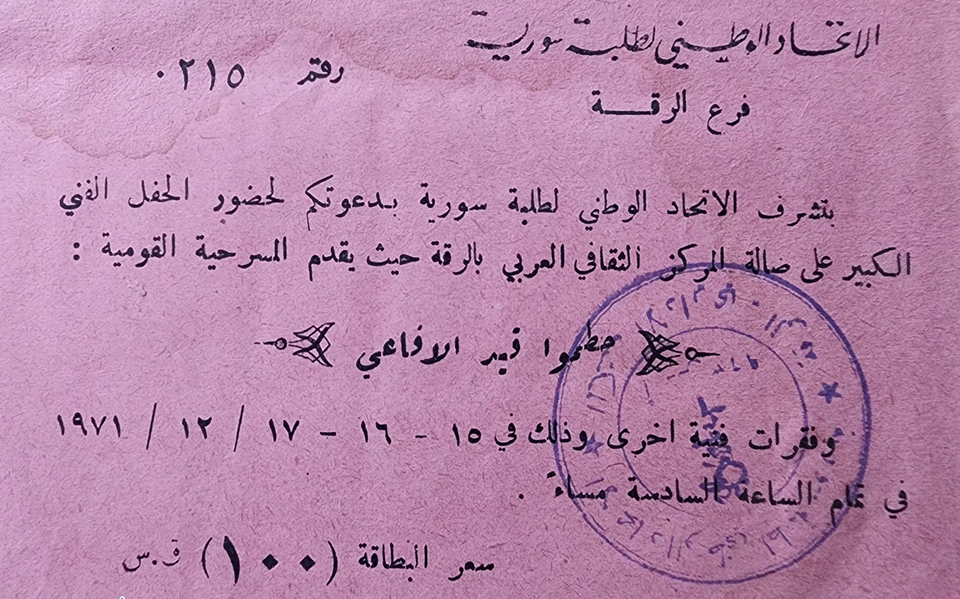 الاتحاد الوطني لطلبة سورية
رقم ٠٢١٥
فرع الرقة
يتشرف الاتحاد الوطني لطلبة سورية بدعوتكم لحضور الحفل الفني
الكبير على صالة المركز الثقافي العربي بالرقة حيث يقدم المسرحية القومية :
حطموا قيد الافاعي
وفقرات فنية اخرى وذلك في ١٥ - ١٦ - ١٧ / ١٢ / ١٩٧١
في تمام الساعة السادسة مساءً .
سعر البطاقة (١٠٠) ق.س